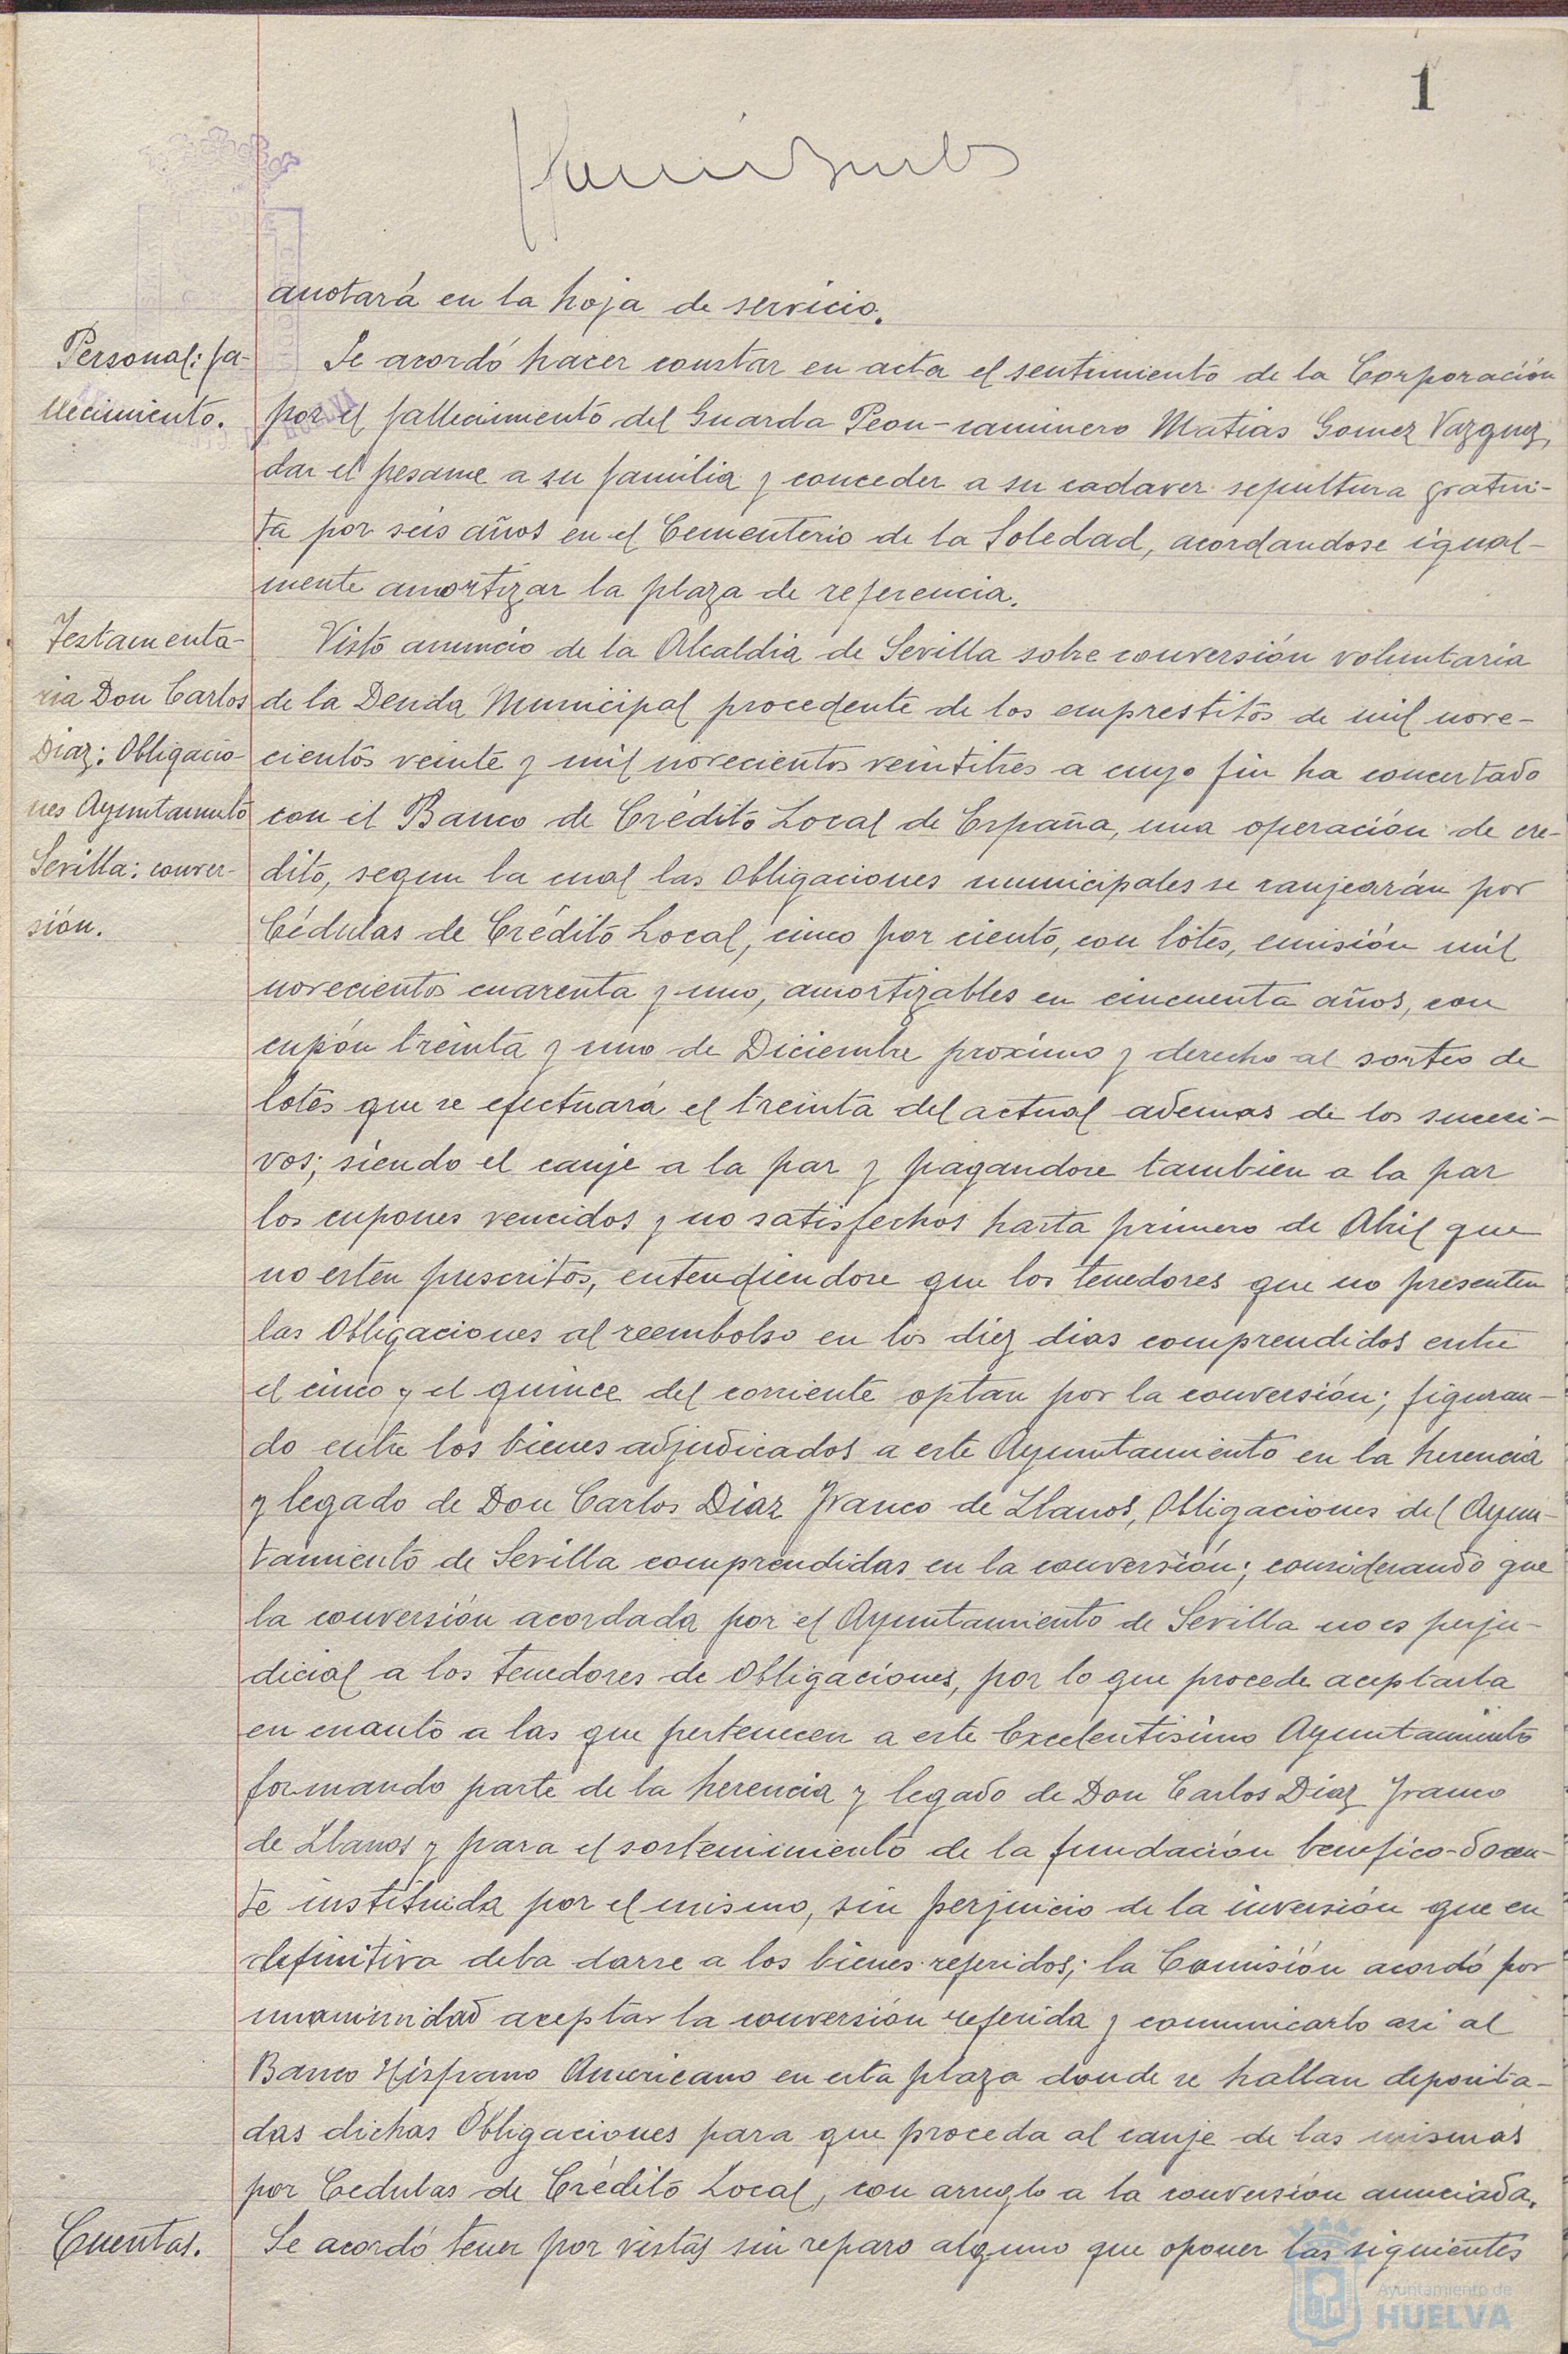 1
anotará en la hoja de servicio.
Personal: fa-
llecimiento.
Se acordó hacer constar en acta el sentimiento de la Corporación
por el fallecimiento del Guarda Peon-caminero Matias Gomez Vazquez,
dar el pesame a su familia y conceder a su cadaver sepultura gratui-
ta por seis años en el Cementerio de la Soledad, acordandose igual-
mente amortizar la plaza de referencia.
Testamenta-
ria Don Carlos
Diaz: Obligacio-
nes Ayuntamntō
Sevilla: conver-
sión.
Visto anuncio de la Alcaldia de Sevilla sobre conversión voluntaria
de la Deuda Municipal procedente de los emprestitos de mil nove-
cientos veinte y mil novecientos veintitres a cuyo fin ha concertado
con el Banco de Crédito Local de España, una operación de cre-
dito, segun la cual las Obligaciones municipales se canjearán por
Cédulas de Crédito Local, cinco por ciento, con lotes, emisión mil
novecientos cuarenta y uno, amortizables en cincuenta años, con
cupón treinta y uno de Diciembre proximo y derecho al sorteo de
lotes que se efectuará el treinta del actual ademas de los sucesi-
vos; siendo el canje a la par y pagandose tambien a la par
los cupones vencidos y no satisfechos hasta primero de Abril que
no esten prescritos, entendiendose que los tenedores que no presenten
las Obligaciones al reembolso en los diez dias comprendidos entre
el cinco y el quince del corriente optan por la conversión; figuran-
do entre los bienes adjudicados a este Ayuntamiento en la herencia
y legado de Don Carlos Diaz Franco de Llanos, Obligaciones del Ayun-
tamiento de Sevilla comprendidas en la conversión; considerando que
la conversión acordada por el Ayuntamiento de Sevilla no es perju-
dicial a los tenedores de Obligaciones, por lo que procede aceptarla
en cuanto a las que pertenecen a este Excelentisimo Ayuntamiento
formando parte de la herencia y legado de Don Carlos Diaz Franco
de Llanos y para el sostenimiento de la fundación benefico-docen-
te instituida por el mismo, sin perjuicio de la inversión que en
definitiva deba darse a los bienes referidos; la Comisión acordó por
unanimidad aceptar la conversión referida y comunicarlo asi al
Banco Hispano Americano en esta plaza donde se hallan deposita-
das dichas Obligaciones para que proceda al canje de las mismas
por Cedulas de Crédito Local, con arreglo a la conversión anunciada.
Cuentas.
Se acordó tener por vistas sin reparo alguno que oponer las siguientes
Ayuntamiento de
HUELVA